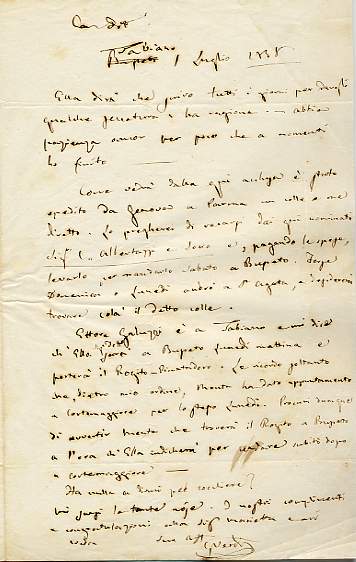 Car dott
Tabiano
Busseto 1 Luglio
Ella dirà che scrivo tutti i giorni per dargli
qualche seccatura e ha ragione abbia
pazienza ancor per poco che a momenti
ho finito
Come vedrà dalla qui acclusa è stato
spedito da Genova a Parma un colle a me
diretto. La pregherei di recarsi dai qui nominati
Albertazzi e e, pagando le spese,
levarlo per mandarlo Sabato a Busseto. Forse
Domenica o Lunedì andrò a St Agata, e desidererei
trovare colà il detto colle.
Ettore Galuzzi è a Tabiano e mi dirà
che Ella a Busseto Lunedì mattina e
porterà il Rogito. Le ricordo soltanto
che, dietro mio ordine, ha dato appuntamento
a Cortemaggiore per lo stesso Lunedì. Procuri dunque
di avvertir che troverà il Rogito a Busseto
a l'ora di Ella per andare subito dopo
a Cortemaggiore
Ha nulla a dirmi pel cocchiere?
Mi scusi le tante noje. I nostri complimenti
e congratulazioni alla Sigra Marietta e mi
creda suo aff
G Verdi